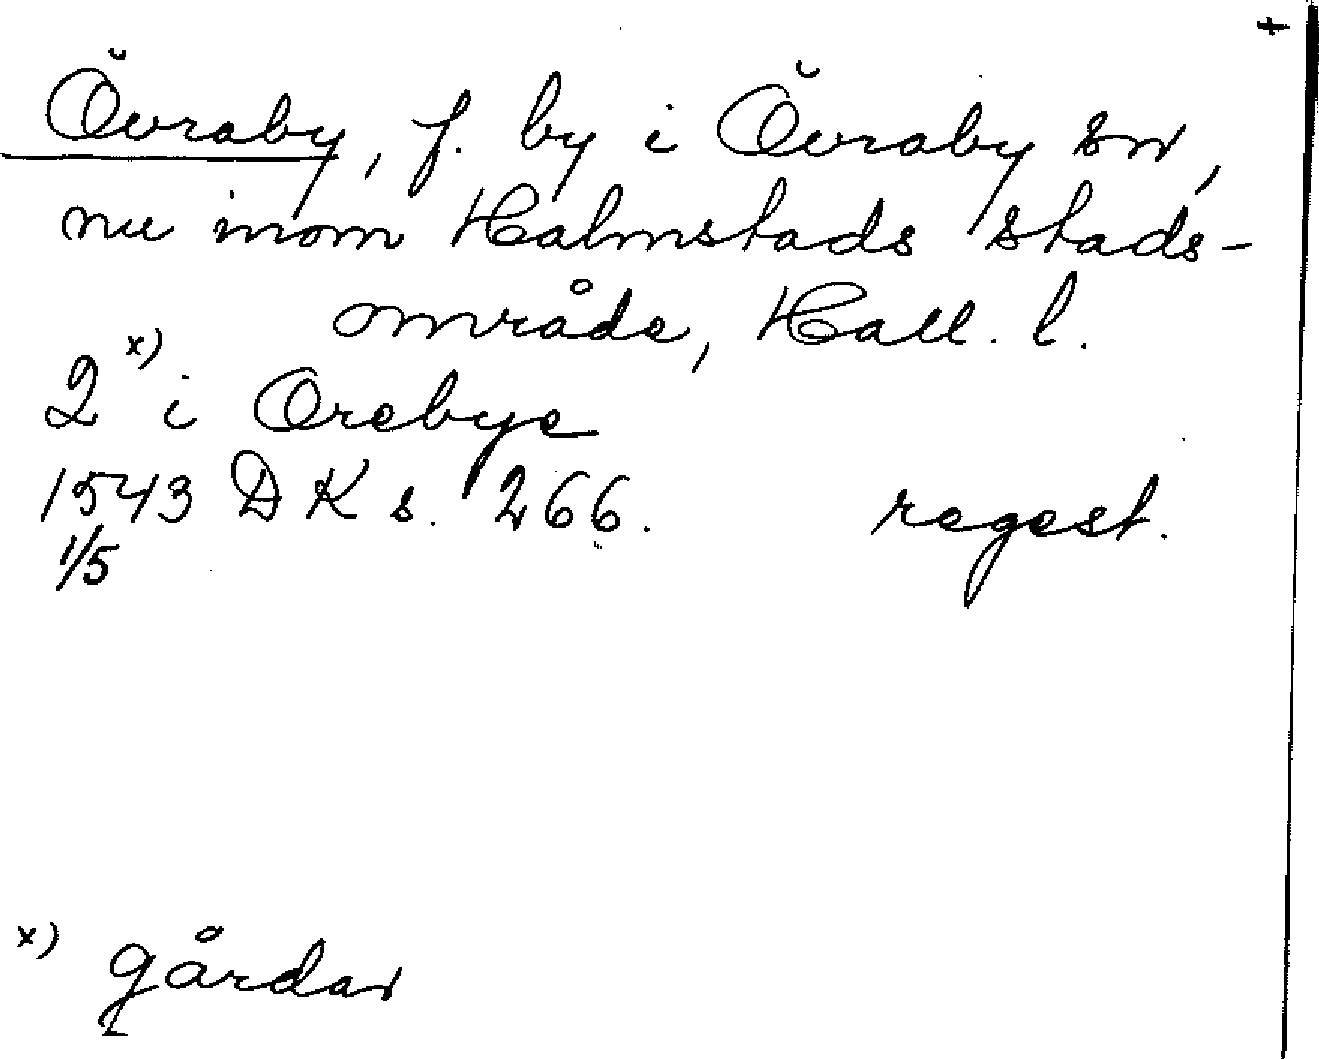 +
Övraby, f. by i Övraby sn,
nu inom Halmstads stads-
område, Hall. l.
2 x) i Orebye
1543 DK s. 266. regest.
1/5
x) gårdar